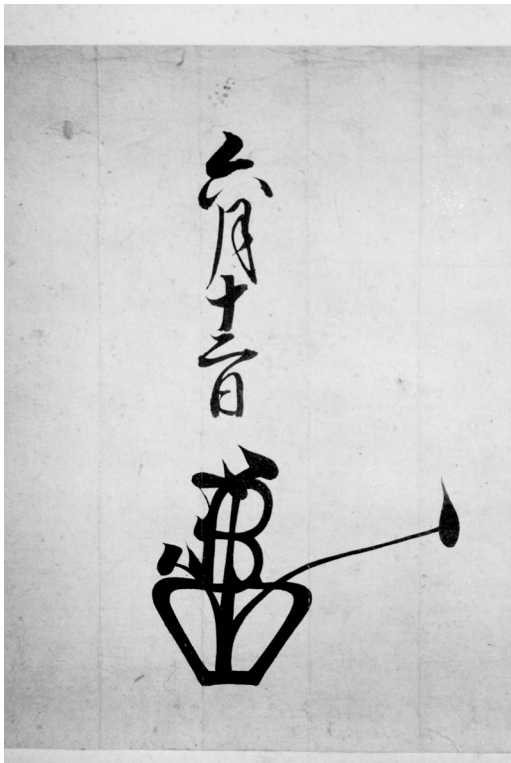 六月十二日